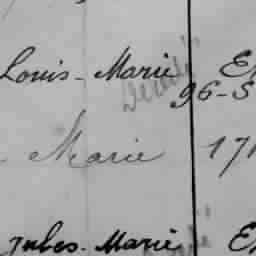 Louis-Marie E
96-S
Marie 171
Jules-Marie E